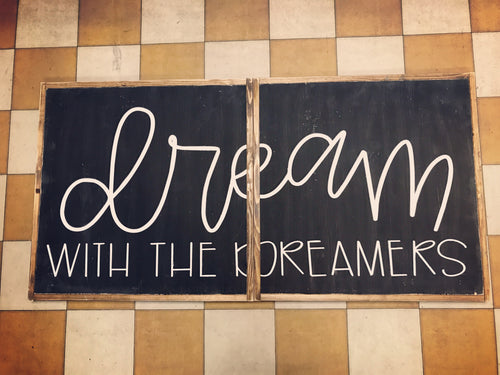 dream
WITH THE DREAMERS